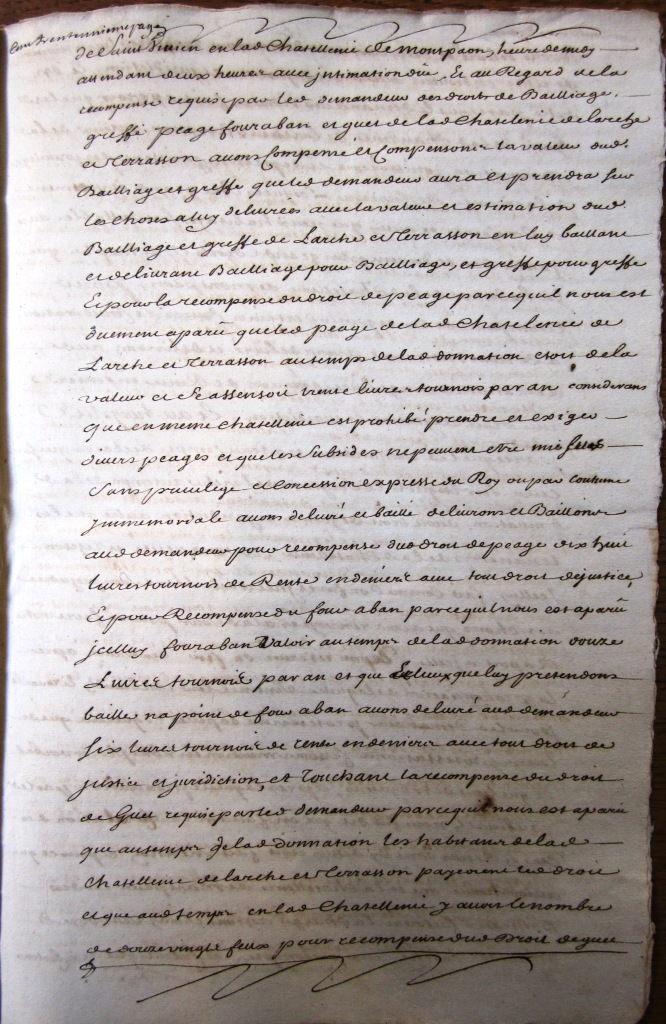 Cent trentenniemepage
de Saint Vivien en lad Chatellenie de monpaon, heure de midy
attendant deux heures avec jntimation dû, Et au Regard de la
recompense requise par led demandeur des droits de Bailliage,
greffe peage four aban et guet de lad Chatelenie de larche
et Terrasson avons Compensé et Compensons la valeur dud
Bailliage et greffe que led demandeur aura et prendra sur
les choses a luy delivrées avec la valeur et estimation dud
Bailliage et greffe de Larche et Terrasson en luy baillant
et delivrant Bailliage pour Bailliage, et greffe pour greffe
Et pour la recompense du droit de peage parcequil nous est
duement aparû que led peage de lad Chatelenie de
Larche et Terrasson au temps de lad donnation etoit de la
valeur et Se assensoit trente livres tournois par an considerans
que en meme Chatellenie est prohibé prendre et exiger
divers peages et que les Subsides ne peuvent etre mis
Sans privilege et Concession expresse du Roy ou par coutume
jmmemoriale avons delivré et baillé delivrons et Baillons
aud demandeur pour recompense dud droit de peage dix huit
livres tournois de Rente en deniers avec tout droit de justice,
Et pour Recompense du four aban parcequil nous est aparû
jcelluy four aban Valoir au temps de lad donnation douze
Livres tournois par an et que Es lieux que luy pretendons
bailler na point de four aban avons delivré aud demandeur
six livres tournois de rente en deniers avec tout droit de
justice et juridiction, et Touchant la recompense du droit
de Guet requise par led demandeur parcequil nous est aparû
que au temps de lad donnation les habitans de lad
Chatellenie de larche et Terrasson payoient led droit
et que aud temps en lad Chatellenie y avoit le nombre
de douze vingts feux pour recompense dud Droit de guet